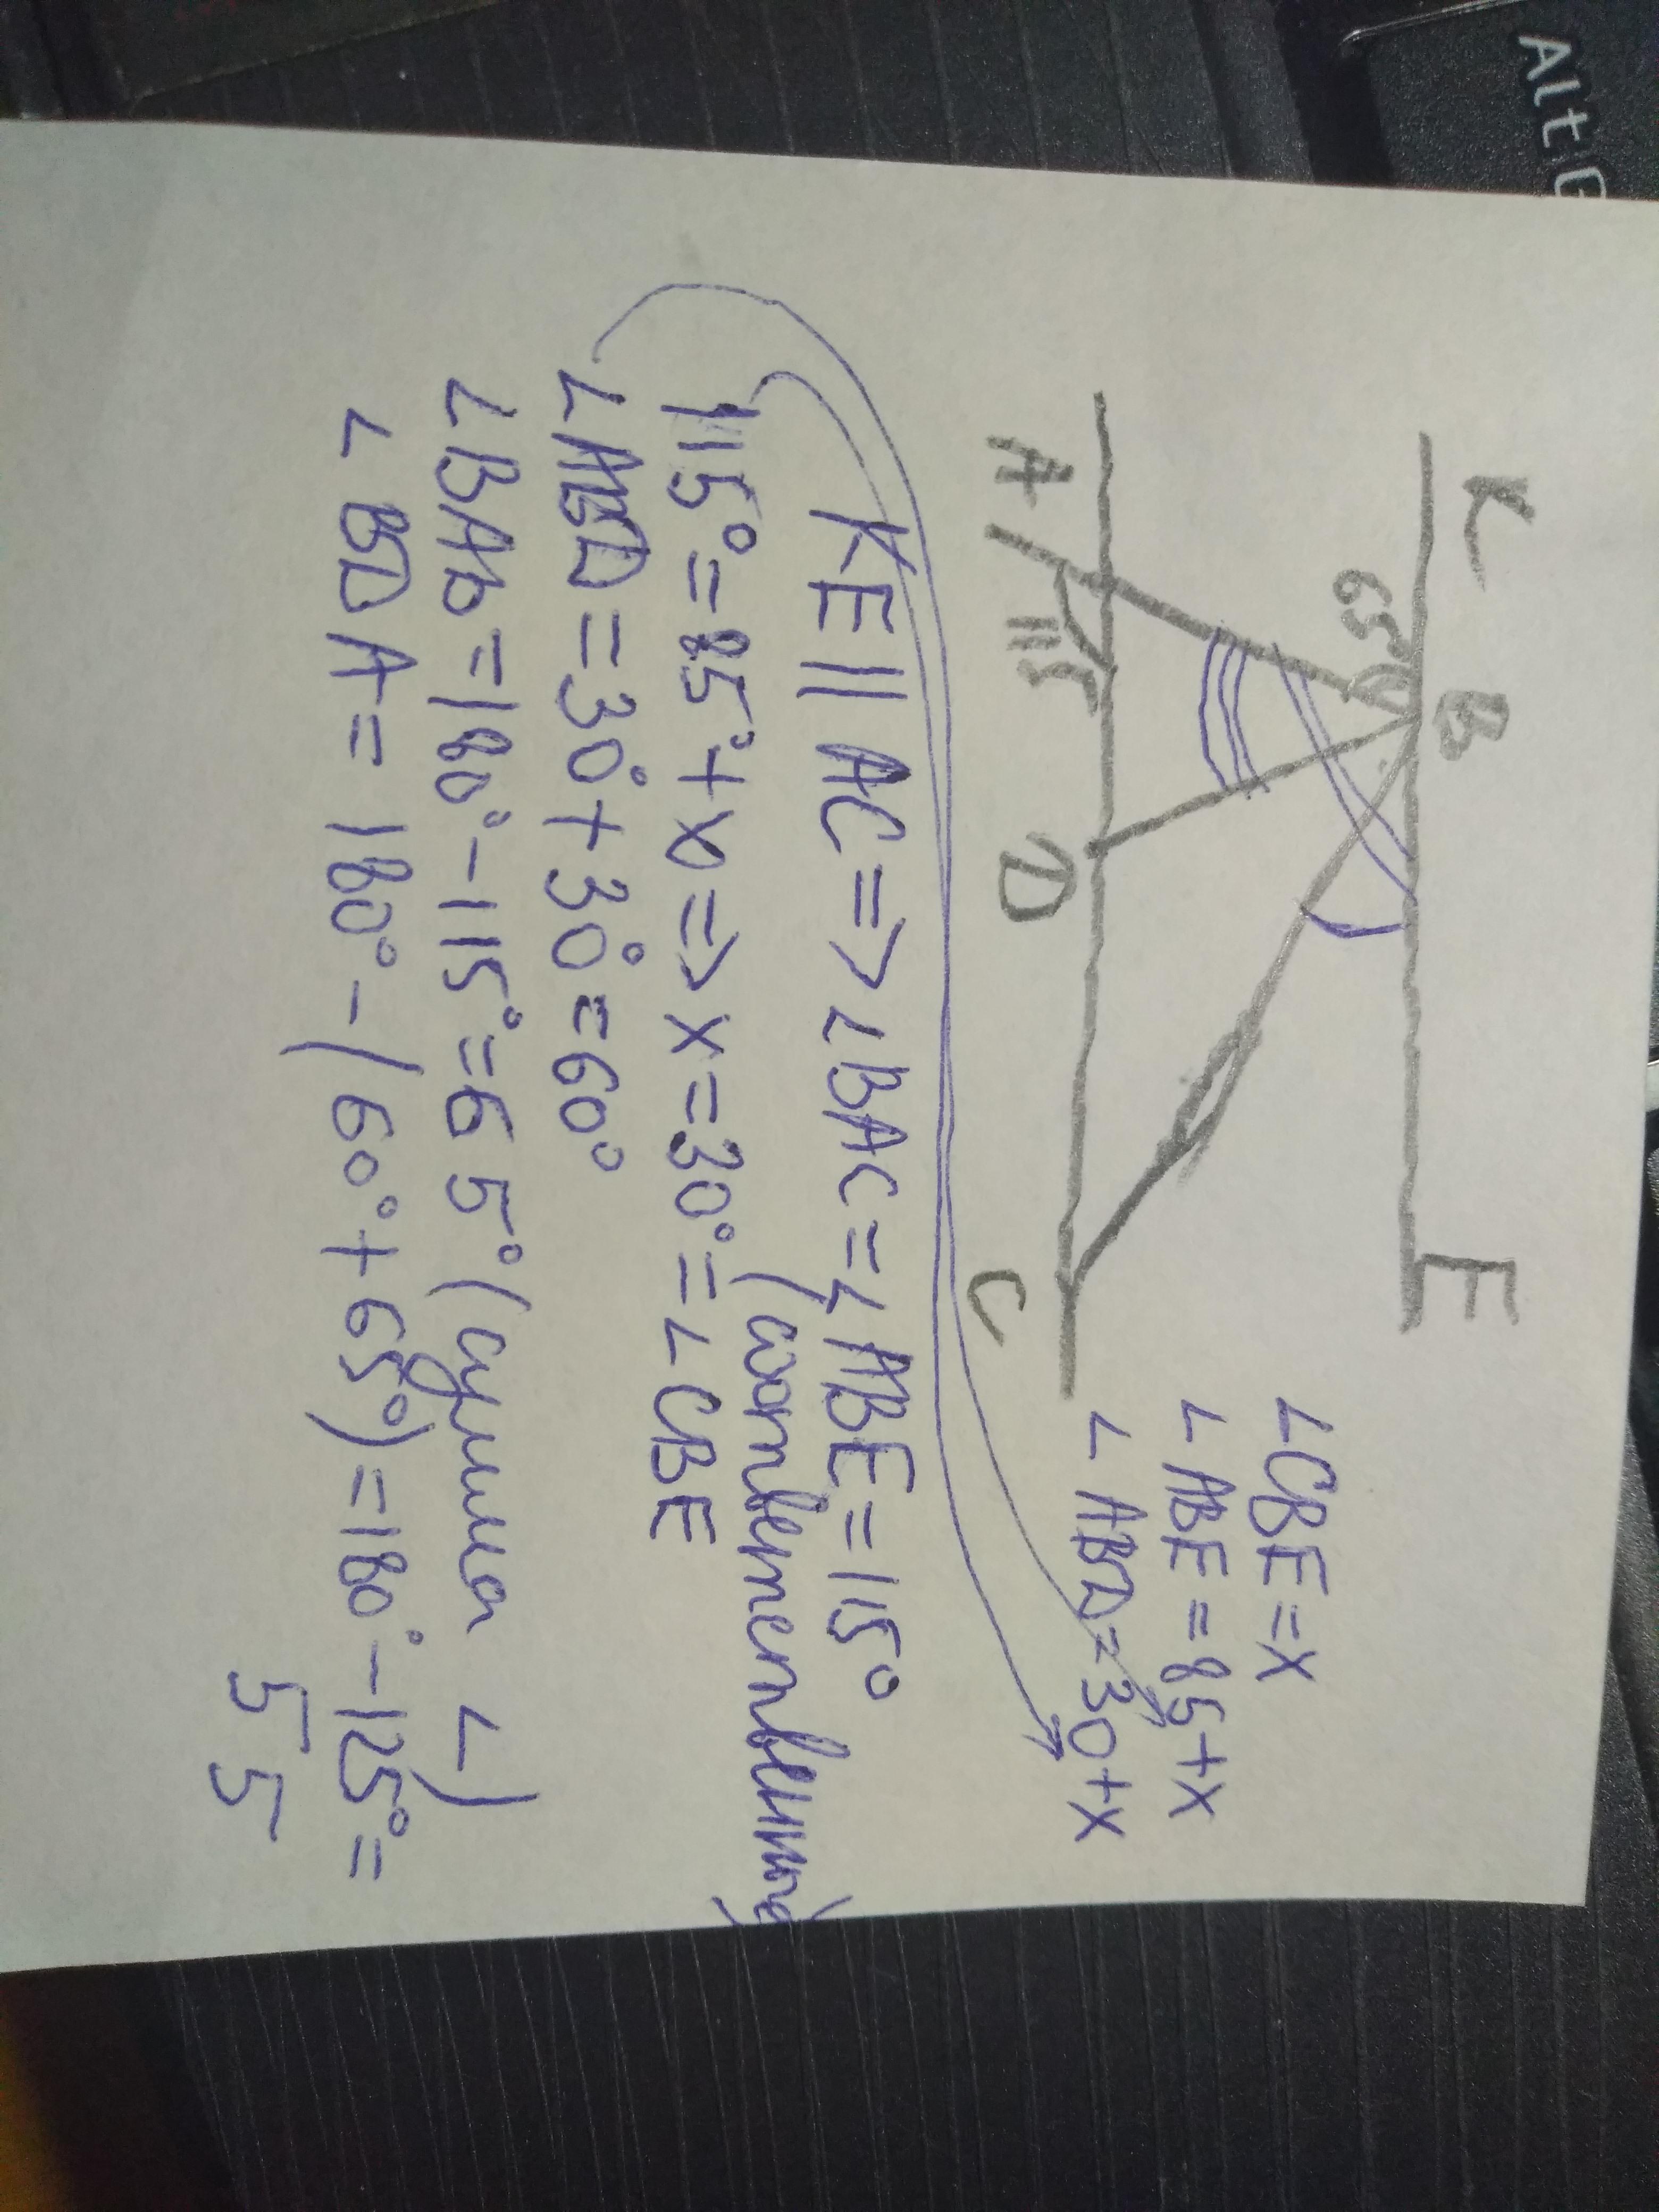 Alt G
K B E
65°
A 115 D C
∠CBE=x
∠ABE=85+x
∠ABD=30+x
KE || AC => ∠BAC=∠ABE=115°
(соответственные)
115°=85°+x => x=30°=∠CBE
∠ABD=30°+30°=60°
∠BAD=180°-115°=65° (сумма ∠)
∠BDA=180°-(60°+65°)=180°-125°=
55